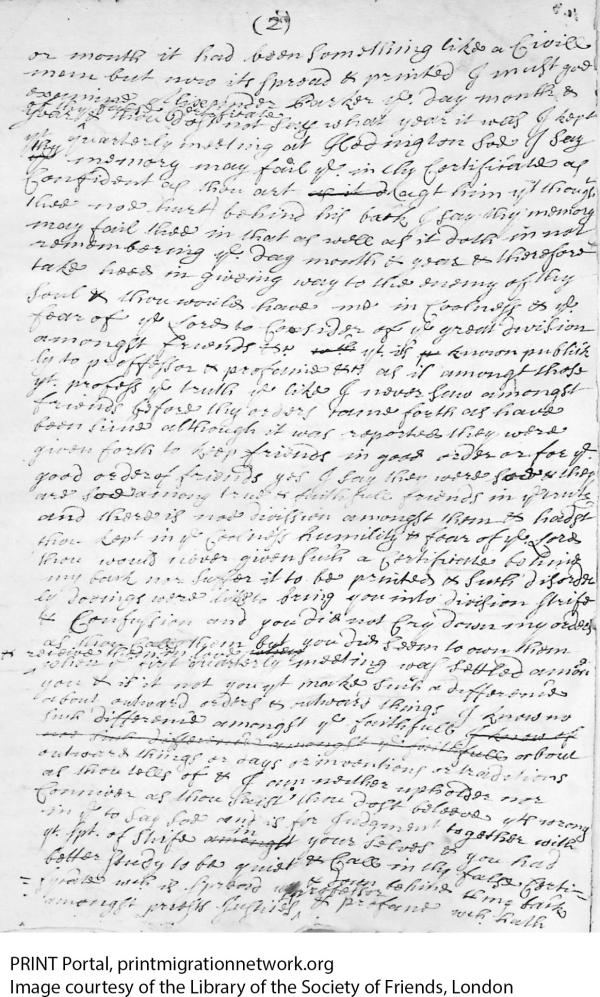 (2)
or month it had been something like a Civill
man but now its spread & printed I must goe
examine Alexander Barker ye. day month &
of thy false Certificate
year & thou dost not say what year it was I kept
yt quarterly meeting at Hednington soe I say
thy memory may fail ye. in thy Certificate as
Confident as thou art agt him yt though
thee noe hurt behind his back I say thy memory
may fail thee in that as well as it doth in not
remembring ye day month & year & therefore
take heed in giveing way to the enemy of thy
soul & thou would have me in Coolness & ye
fear of ye Lord to Consider of ye great division
amongst friends &c yt is known publick
ly to proffessor & profane & as is amongst those
yt profess ye truth ye like I never saw amongst
friends before thy orders came forth as have
been since although it was reported they were
given forth to keep friends in good order or for ye
good order of friends yes I say they were soe & they
are soe among true & faithfull friends in ye truth
and there is noe division amongst them & hadst
thou kept in ye Coolness humility & fear of ye Lord
thou would never given such a Certificate behind
my back nor suffer it to be printed & such disorder
ly doeings were like to bring you into division strife
& Confusion and you did not Cry down my orders
as thou them but you did seem to own them
& received them
when ye first quarterly meeting was settled among
you & is it not you yt make such a difference
about outward orders & outward things I know no
such difference amongst ye faithfull I know of
noe such difference amongst ye faithfull about
outward things or ways or inventions or traditions
as thou tells of & I am neither upholder nor
Conniver as thou saist thou dost beleeve yts wrong
in ye to say soe and is for Judgment together with
yt spt. of strife amongst in your selves & you had
better study to be quiet & Call in thy false Certi=
=ficate wch is spread behind my back
amongst priests Justices, professor & profane wch hath
PRINT Portal, printmigrationnetwork.org
Image courtesy of the Library of the Society of Friends, London